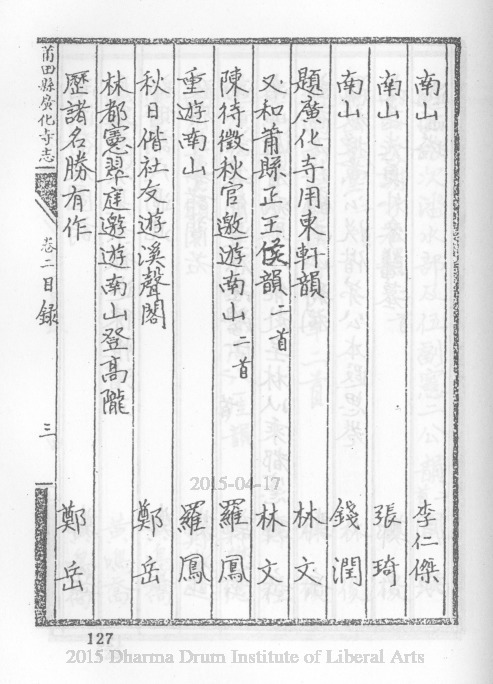 南山 李仁傑
南山 張琦
南山 錢潤
題廣化寺用東軒韻 林文
又和莆縣正王侯韻二首 林文
陳待徵秋官邀遊南山二首 羅鳳
重遊南山 羅鳳
秋日偕社友遊溪聲閣 鄭岳
林都憲翠庭邀遊南山登高隴
歷諸名勝有作 鄭岳
莆田縣廣化寺志 卷二目錄 三
2015-04-17
127
2015 Dharma Drum Institute of Liberal Arts